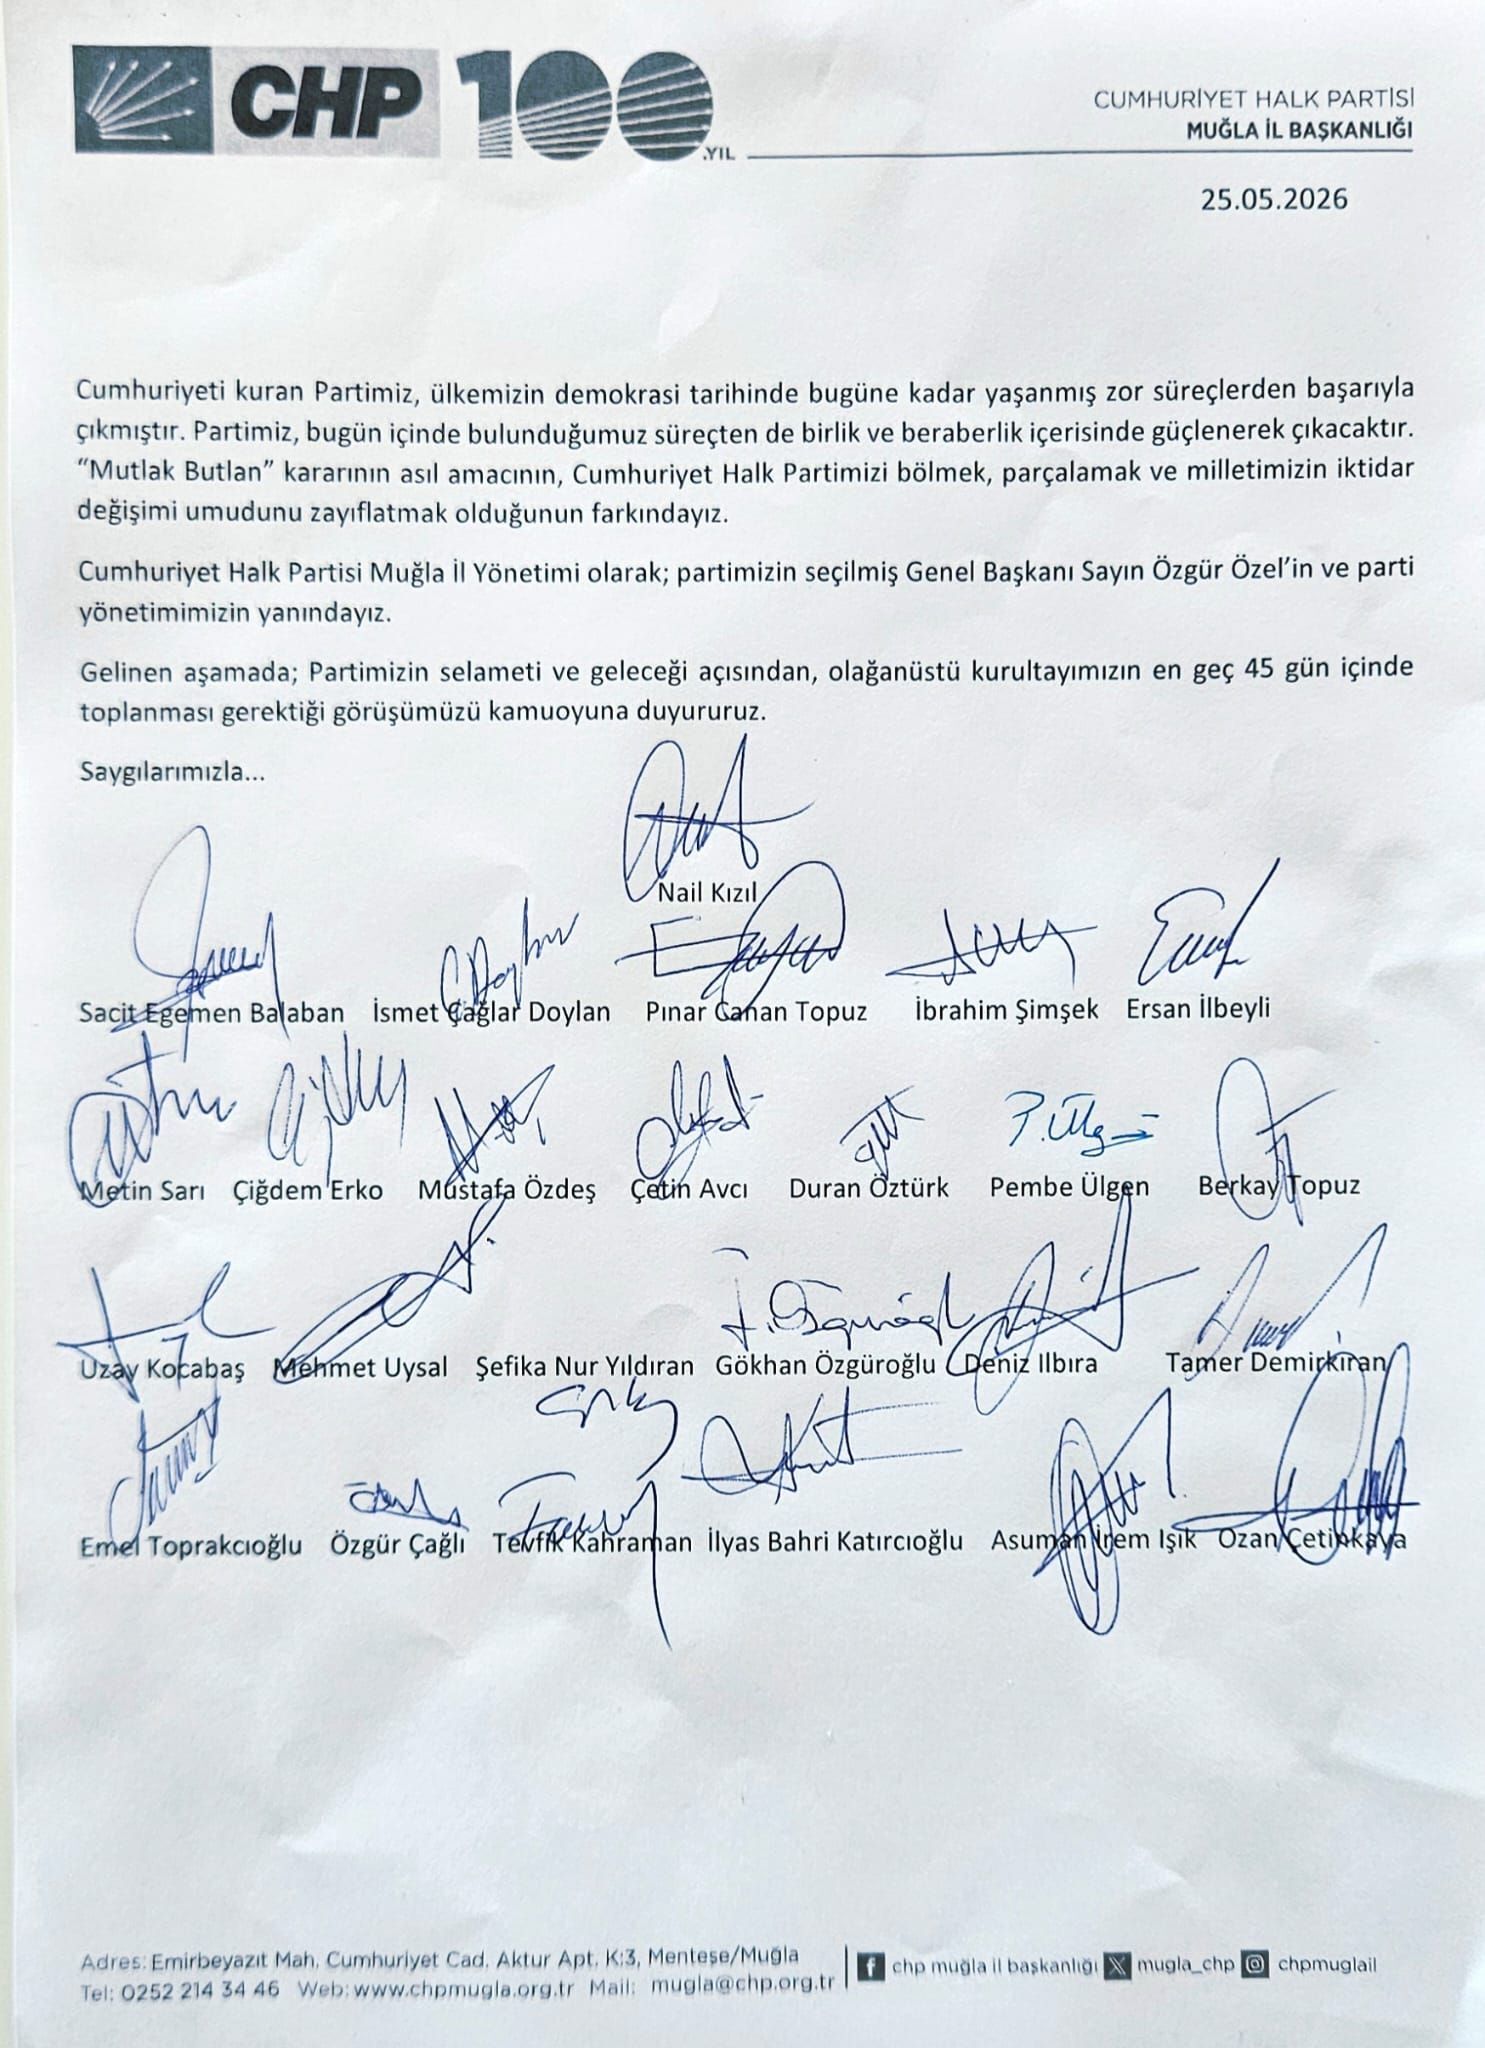 CHP 100 .YIL
CUMHURİYET HALK PARTİSİ
MUĞLA İL BAŞKANLIĞI
25.05.2026
Cumhuriyeti kuran Partimiz, ülkemizin demokrasi tarihinde bugüne kadar yaşanmış zor süreçlerden başarıyla
çıkmıştır. Partimiz, bugün içinde bulunduğumuz süreçten de birlik ve beraberlik içerisinde güçlenerek çıkacaktır.
“Mutlak Butlan” kararının asıl amacının, Cumhuriyet Halk Partimizi bölmek, parçalamak ve milletimizin iktidar
değişimi umudunu zayıflatmak olduğunun farkındayız.
Cumhuriyet Halk Partisi Muğla İl Yönetimi olarak; partimizin seçilmiş Genel Başkanı Sayın Özgür Özel’in ve parti
yönetimimizin yanındayız.
Gelinen aşamada; Partimizin selameti ve geleceği açısından, olağanüstü kurultayımızın en geç 45 gün içinde
toplanması gerektiği görüşümüzü kamuoyuna duyururuz.
Saygılarımızla...
Nail Kızıl
Sacit Egemen Balaban İsmet Çağlar Doylan Pınar Canan Topuz İbrahim Şimşek Ersan İlbeyli
P. Ülgen
Metin Sarı Çiğdem Erko Mustafa Özdeş Çetin Avcı Duran Öztürk Pembe Ülgen Berkay Topuz
Uzay Kocabaş Mehmet Uysal Şefika Nur Yıldıran Gökhan Özgüroğlu Deniz Ilbıra Tamer Demirkıran
Emel Toprakcıoğlu Özgür Çağlı Tevfik Kahraman İlyas Bahri Katırcıoğlu Asuman İrem Işık Ozan Çetinkaya
Adres: Emirbeyazıt Mah. Cumhuriyet Cad. Aktur Apt. K:3, Menteşe/Muğla
Tel: 0252 214 34 46 Web: www.chpmugla.org.tr Mail: mugla@chp.org.tr
chp muğla il başkanlığı mugla_chp chpmuglail